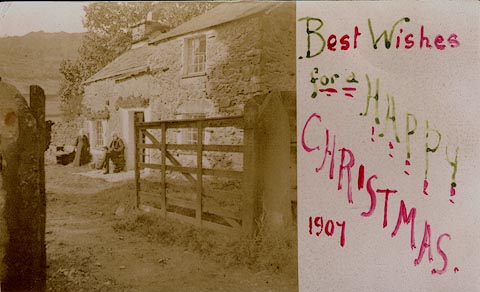 Best Wishes
for a
HAPPY
CHRISTMAS.
1907